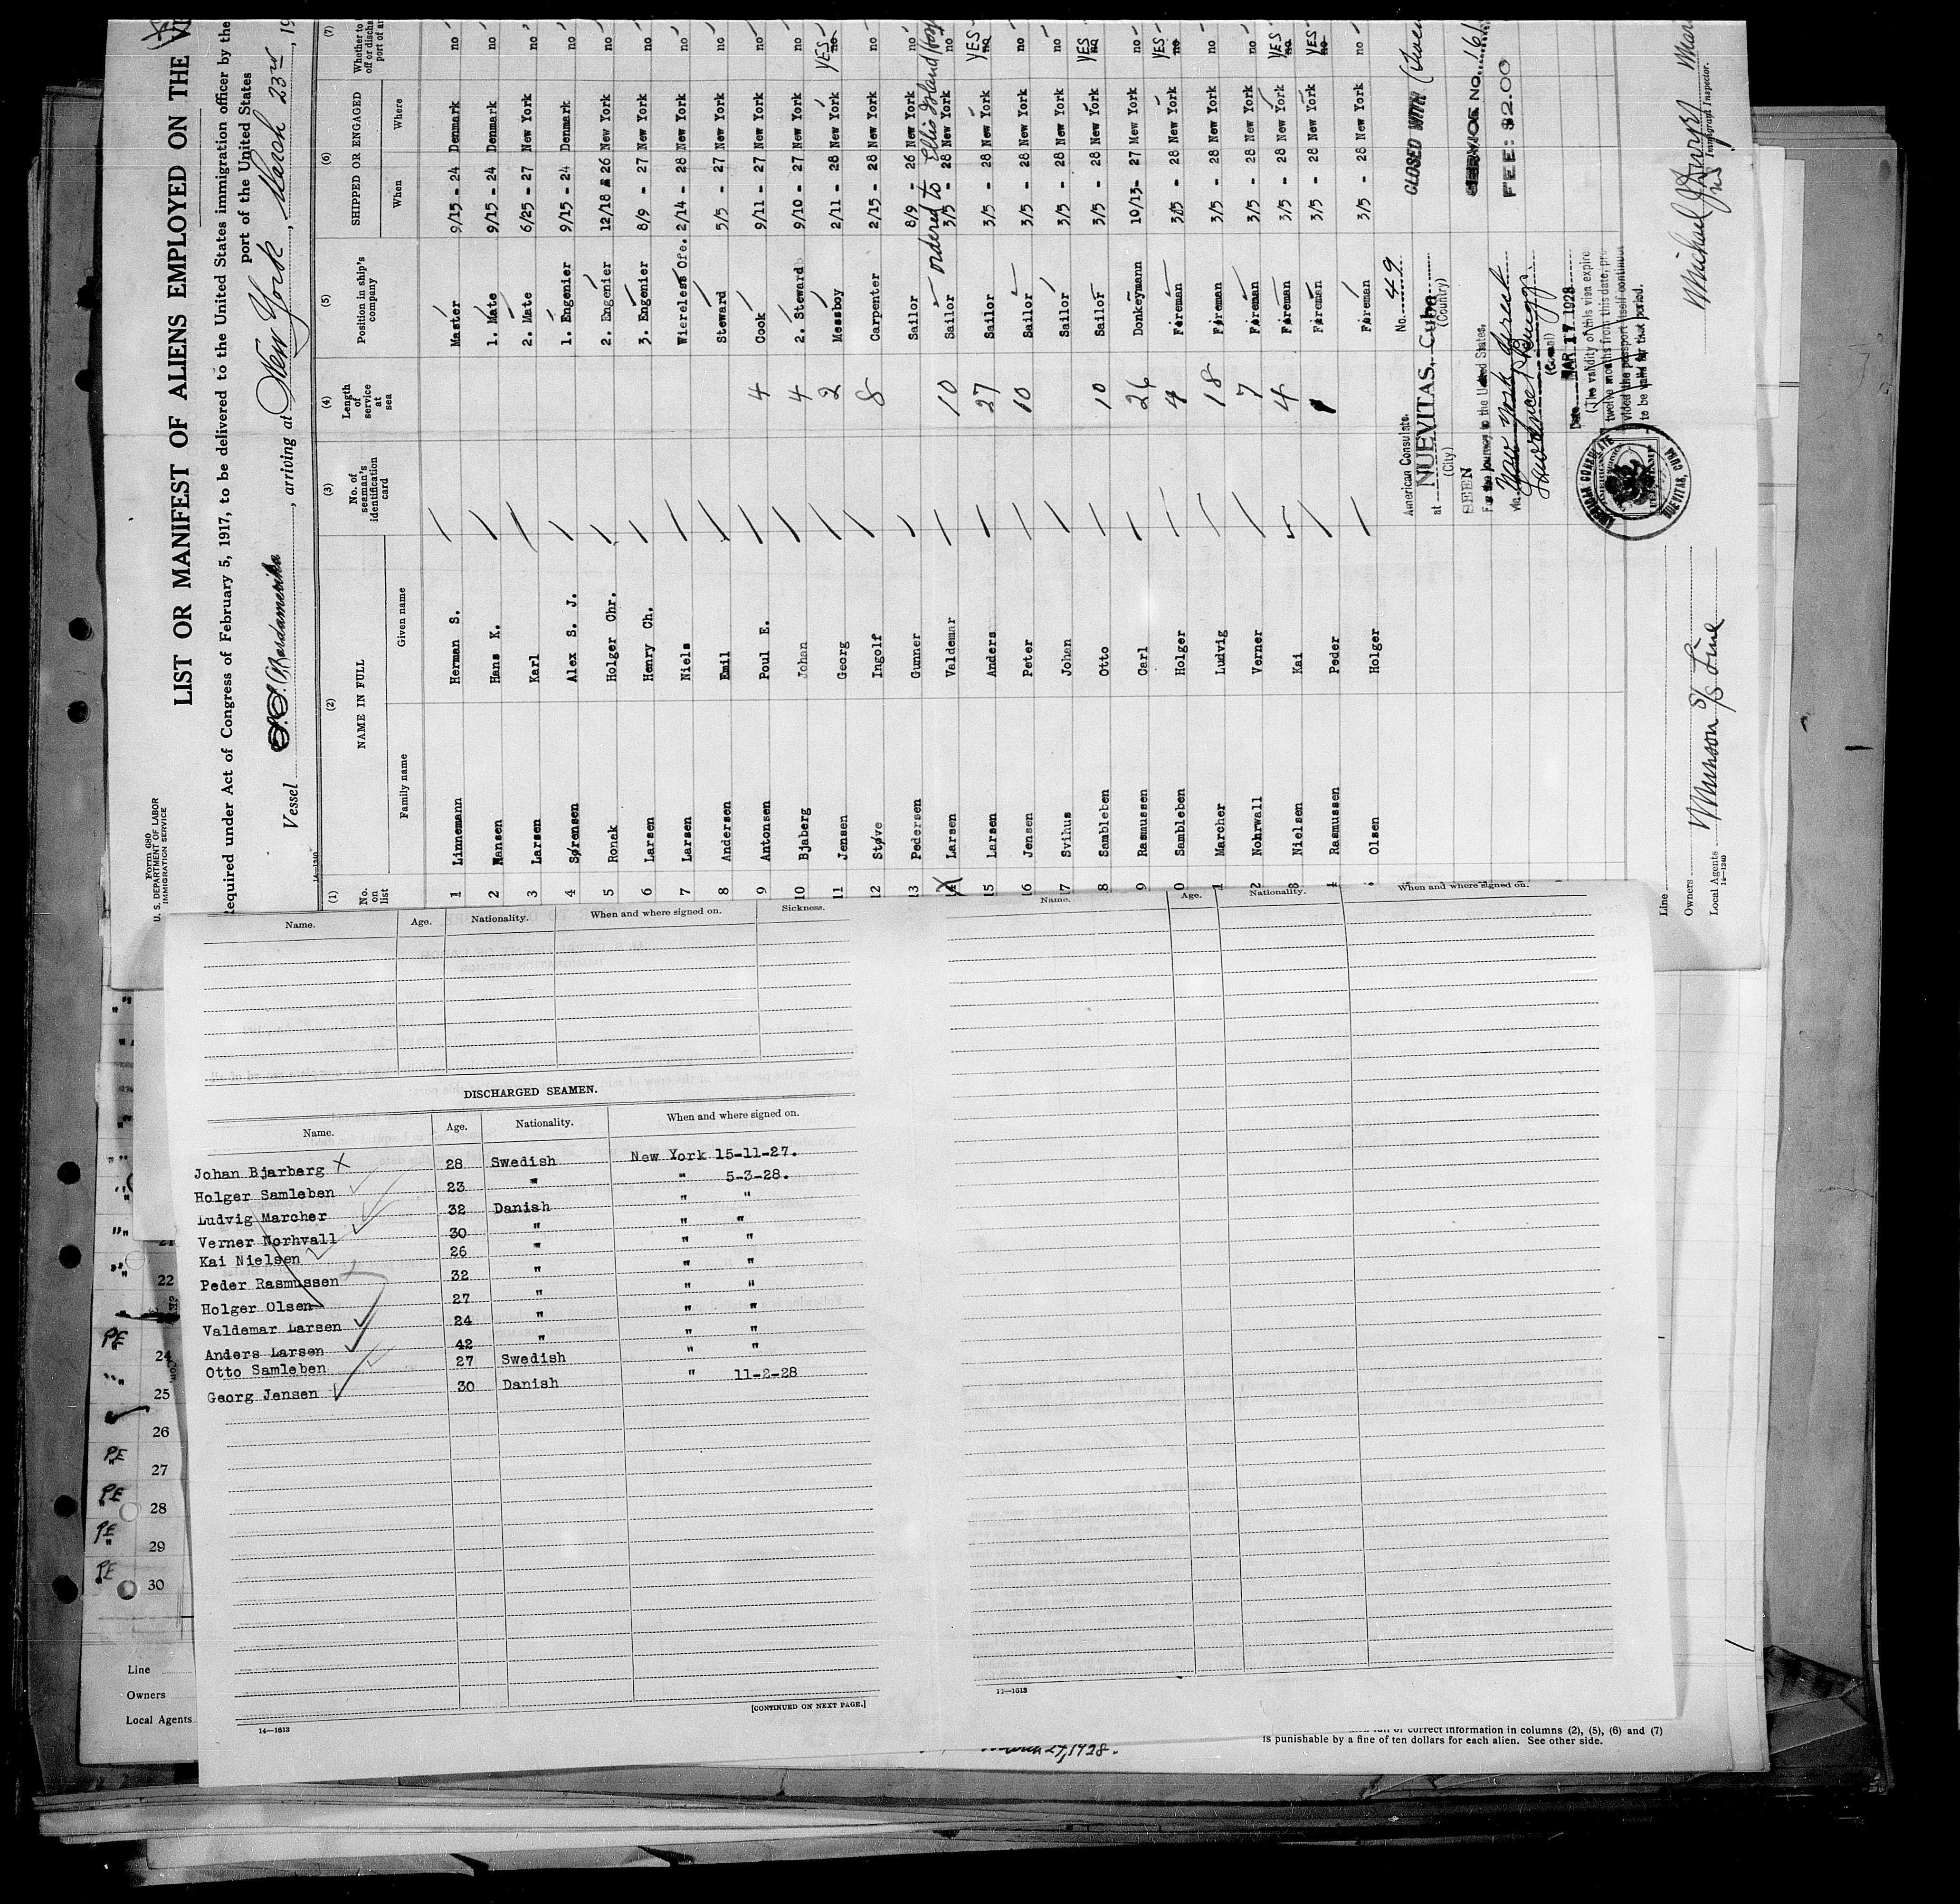 Form 680
U. S. DEPARTMENT OF LABOR
IMMIGRATION SERVICE
LIST OR MANIFEST OF ALIENS EMPLOYED ON THE
equired under Act of Congress of February 5, 1917, to be delivered to the United States immigration officer by the
port of the United States
Vessel S.S. Nordamerika, arriving at New York, March 23rd, 19
14-1240
(1) (2) (3) (4) (5) (6) (7)
No. on list NAME IN FULL No. of seaman's identification card Length of service at sea Position in ship's company SHIPPED OR ENGAGED
Family name Given name When Where
1 Linnemann Herman S. Master 9/15 - 24 Denmark no
2 Hansen Hans K. 1. Mate 9/15 - 24 Denmark no
3 Larsen Karl 2. Mate 6/25 - 27 New York no
4 Sørensen Alex S. J. 1. Engenier 9/15 - 24 Denmark no
5 Ronak Holger Chr. 2. Engenier 12/18 - 26 New York no
6 Larsen Henry Ch. 3. Engenier 8/9 - 27 New York no
7 Larsen Niels Wiereless Ofe. 2/14 - 28 New York no
8 Andersen Emil Steward 5/5 - 27 New York no
9 Antonsen Poul E. 4 Cook 9/11 - 27 New York no
10 Bjaberg Johan 4 2. Steward 9/10 - 27 New York no
11 Jensen Georg 2 Messboy 2/11 - 28 New York no YES
12 Støve Ingolf 8 Carpenter 2/15 - 28 New York no
13 Pedersen Gunner Sailor 8/9 - 26 New York no
14 Larsen Valdemar 10 Sailor 3/5 - 28 New York no
ordered to Ellis Island Hosp
15 Larsen Anders 27 Sailor 3/5 - 28 New York no YES
16 Jensen Peter 10 Sailor 3/5 - 28 New York no
17 Svihus Johan Sailor 3/5 - 28 New York no
8 Sambleben Otto 10 Sailor 3/5 - 28 New York no YES
9 Rasmussen Carl 26 Donkeymann 10/13- 27 New York no
0 Sambleben Holger 4 Fireman 3/5 - 28 New York no YES
1 Marcher Ludvig 18 Fireman 3/5 - 28 New York no
2 Nohrwall Verner 7 Fireman 3/5 - 28 New York no
3 Nielsen Kai 4 Fireman 3/5 - 28 New York no YES
Rasmussen Peder 1 Fireman 3/5 - 28 New York no YES
Olsen Holger Fireman 3/5 - 28 New York no
American Consulate. No. 49
at NUEVITAS, Cuba
(City) (Country)
SEEN
For the journey to the United States,
via New York direct
(Consul)
Date MAR 17 1928
(The validity of this visa expire
twelve months from this date, pro
vided the passport itself continues
to be valid for that period.
CLOSED WITH
SERVICE NO. 161
FEE: $2.00
AMERICAN CONSULATE
NUEVITAS, CUBA
Line
Owners Munson S/S Line
Local Agents
14-1240
Immigrant Inspector.
Name. Age. Nationality. When and where signed on. Sickness.
Name. Age. Nationality. When and where signed on.
DISCHARGED SEAMEN.
Name. Age. Nationality. When and where signed on.
Johan Bjarberg X 28 Swedish New York 15-11-27.
Holger Samleben 23 " " 5-3-28.
Ludvig Marcher 32 Danish " "
Verner Norhvall 30 " " "
Kai Nielsen 26 " " "
Peder Rasmussen 32 " " "
Holger Olsen 27 " " "
Valdemar Larsen 24 " " "
Anders Larsen 42 " " "
Otto Samleben 27 Swedish " "
Georg Jensen 30 Danish " 11-2-28
[CONTINUED ON NEXT PAGE.]
14-1613
11-1613
22
24
PE
25
26
PE 27
PE 28
PE 29
PE 30
Line
Owners
Local Agents
24, 1928.
correct information in columns (2), (5), (6) and (7)
is punishable by a fine of ten dollars for each alien. See other side.